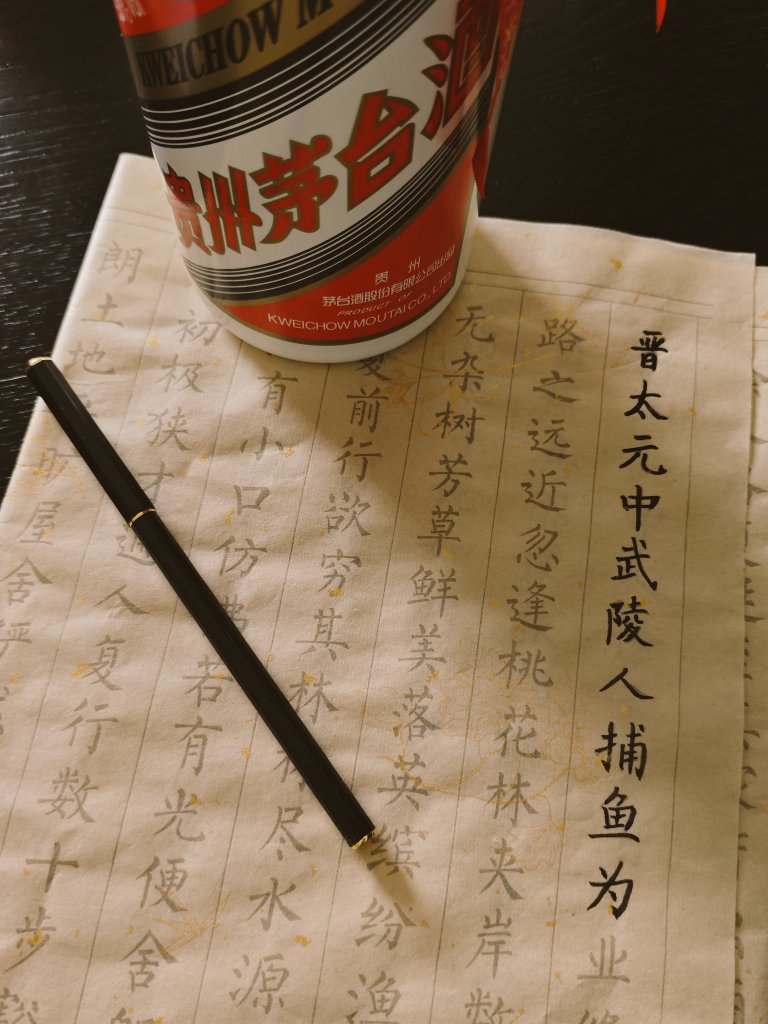 KWEICHOW M
贵州茅台酒
贵州
茅台酒股份有限公司出品
PRODUCT OF
KWEICHOW MOUTAI CO., LTD.
晋太元中武陵人捕鱼为业
路之远近忽逢桃花林夹岸数
无杂树芳草鲜美落英缤纷渔
复前行欲穷其林尽水源
有小口仿佛若有光便舍
初极狭才通人复行数十步豁
朗土地旷屋舍俨